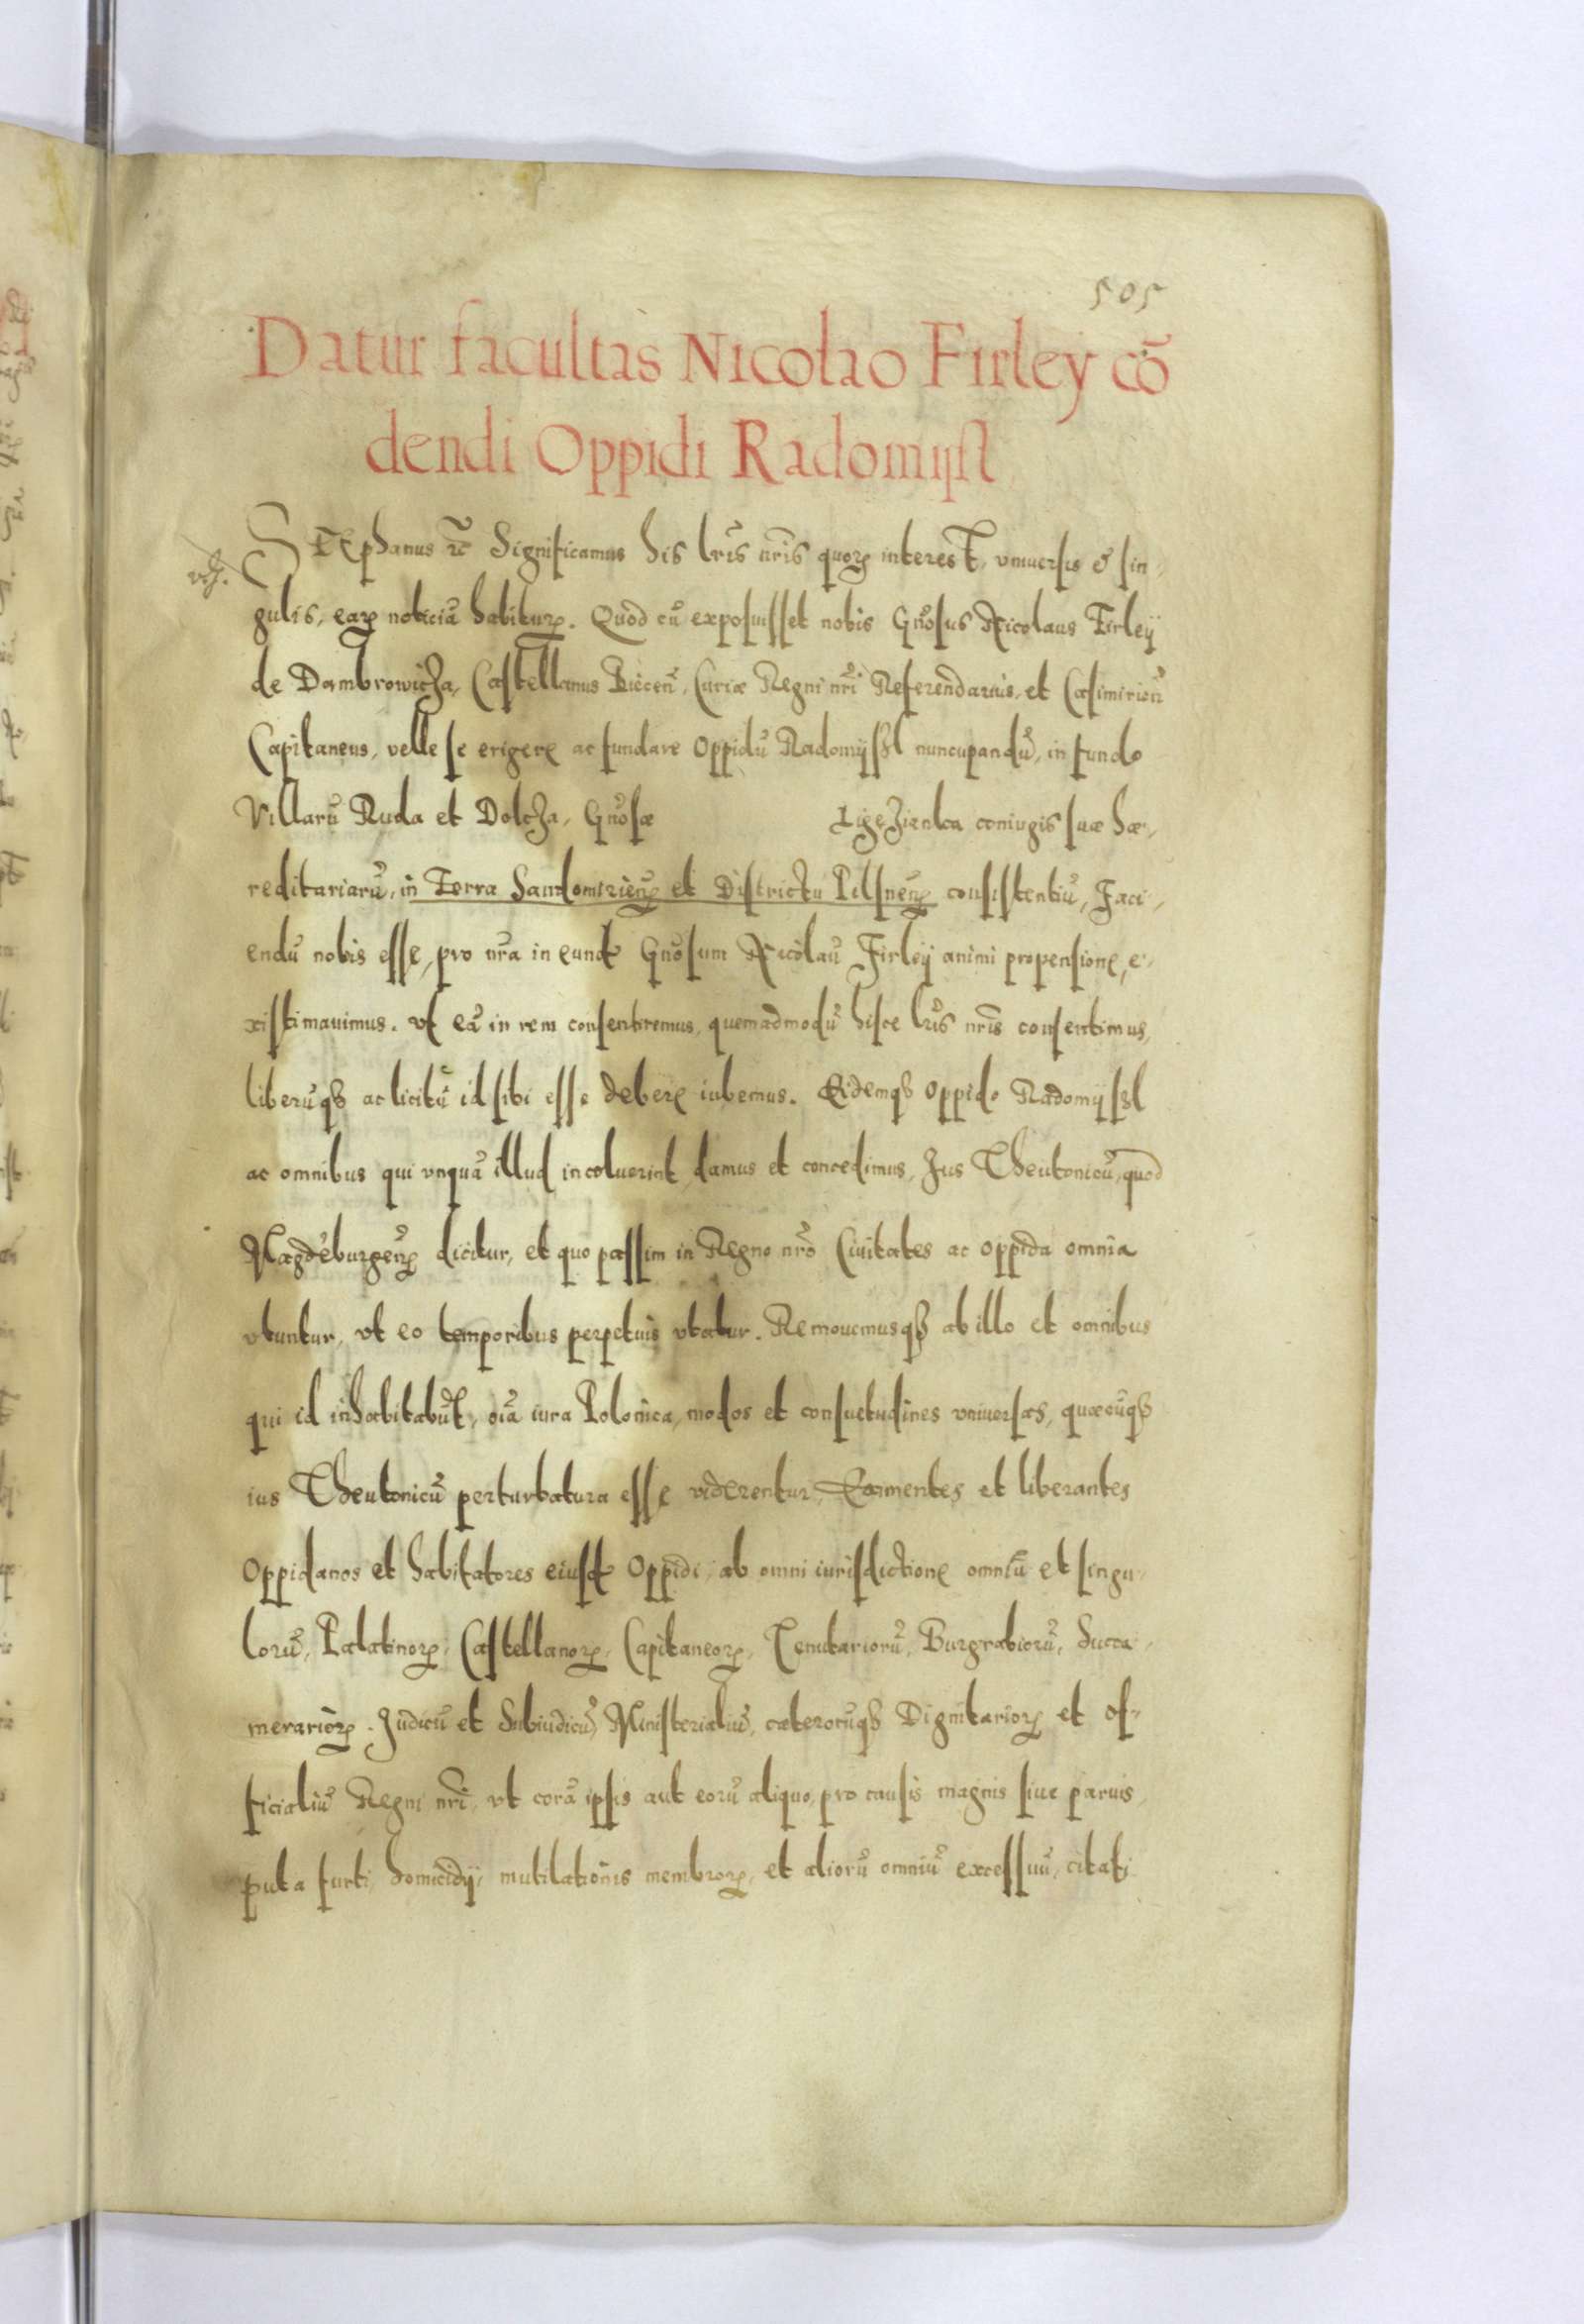 505
Datur facultas Nicolao Firley cõ
dendi Oppidi Radomijsl
STEphanus ꝛc Significamus his lr̃is nr̃is quorꝫ interest, vniuersis & sin-
gulis, earꝫ noticiã habiturꝫ. Quod cũ exposuisset nobis Gñosus Nicolaus Firleij
de Dambrowicza, Castellanus Biecen̄, Curiæ Regni nr̃i Referendarius, et Casimirien̄
Capitaneus, velle se erigere ac fundare Oppidũ Radomijszl nuncupandũ, in fundo
Villarũ Ruda et Dolcza, Gñosæ Ligezienka coniugis suæ hæ-
reditariarũ, in Terra Sandomirien̄ et Districtu Pilsnen̄ consistentiũ, Faci-
endũ nobis esse, pro nr̃a in eund Gñosum Nicolaũ Firleij animi propensione, e-
xistimauimus. vt eã in rem consentiremus, quemadmodũ hisce lr̃is nr̃is consentimus,
liberũqȝ ac licitũ id sibi esse debere iubemus. Eidemqȝ Oppido Radomijszl
ac omnibus qui vnquã illud incoluerint, damus et concedimus, Jus Theutonicũ, quod
Magdeburgen̄ dicitur, et quo passim in Regno nr̃o Ciuitates ac Oppida omnia
vtuntur, vt eo temporibus perpetuis vtatur. Remouemusqȝ ab illo et omnibus
qui id inhabitabũt, oĩa iura Polonica, modos et consuetudines vniuersas, quæcũqȝ
ius Theutonicũ perturbatura esse viderentur, Eximentes et liberantes
Oppidanos et habitatores eiusd Oppidi, ab omni iurisdictione omniũ et singu-
lorũ, Palatinorꝫ, Castellanorꝫ, Capitaneorꝫ, Tenutariorũ, Burgrabiorũ, Succa-
merariorꝫ. Judicũ et Subiudicũ, Ministerialiũ, cæterorũqȝ Dignitariorꝫ et of-
ficialiũ Regni nr̃i, vt corã ipsis aut eorũ aliquo, pro causis magnis siue paruis,
puta furti, homicidij, mutilationis membrorꝫ, et aliorũ omniũ excessuũ, citati